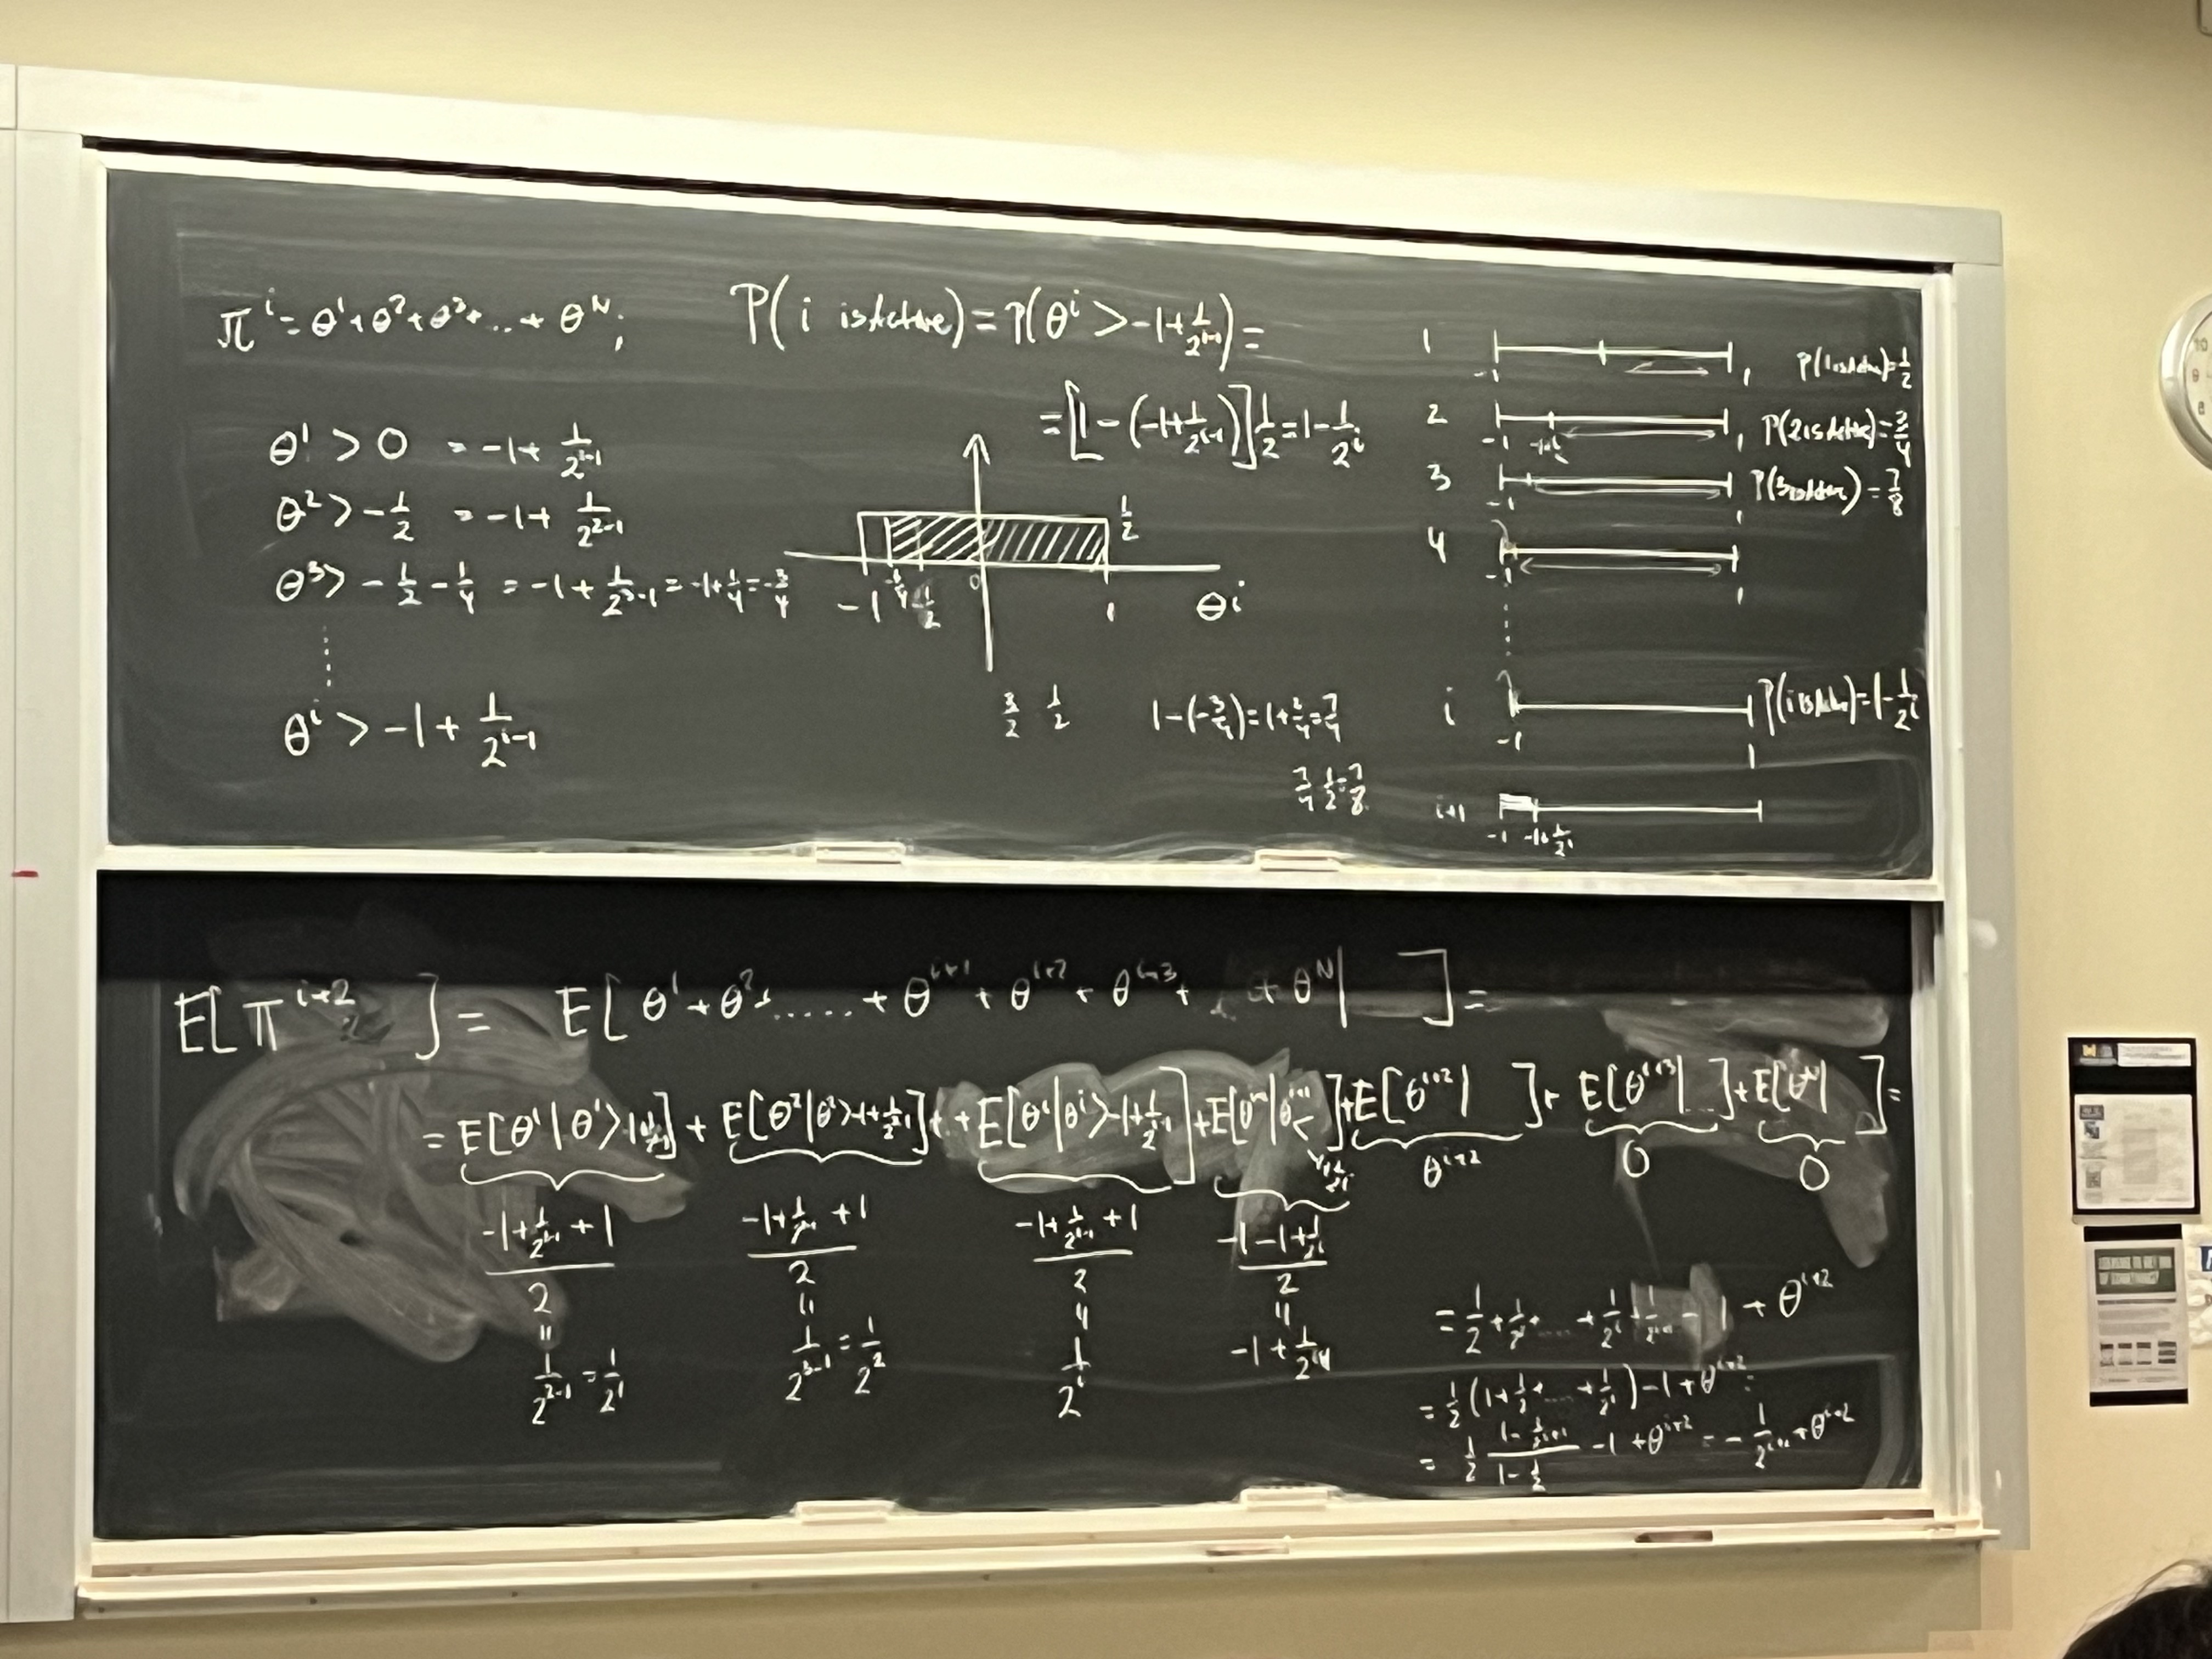 πⁱ = θ¹ + θ² + θ³ + ... + θᴺ;
P(i is Active) = P(θⁱ > -1 + 1/2ⁱ⁻¹) =
= [1 - (-1 + 1/2ⁱ⁻¹)] 1/2 = 1 - 1/2ⁱ
θ¹ > 0 = -1 + 1/2¹⁻¹
θ² > -1/2 = -1 + 1/2²⁻¹
θ³ > -1/2 - 1/4 = -1 + 1/2³⁻¹ = -1 + 1/4 = -3/4
θⁱ > -1 + 1/2ⁱ⁻¹
1/2
-1 -3/4 -1/2 0 1 θⁱ
3/2 1/2
1 - (-3/4) = 1 + 3/4 = 7/4
7/4 1/2 = 7/8
1 -1 1 P(1 is Active) = 1/2
2 -1 1 P(2 is Active) = 3/4
3 -1 1 P(3 is Active) = 7/8
4 -1 1
i -1 1 P(i is Active) = 1 - 1/2ⁱ
i+1 -1 -1 + 1/2ⁱ
E[πⁱ⁺²] = E[θ¹ + θ² + ..... + θⁱ⁺¹ + θⁱ⁺² + θⁱ⁺³ + ... + θᴺ | ] =
= E[θ¹ | θ¹ > -1 + 1/2¹⁻¹] + E[θ² | θ² > -1 + 1/2²⁻¹] + + E[θⁱ | θⁱ > -1 + 1/2ⁱ⁻¹] + E[θⁱ⁺¹ | θⁱ⁺¹ < -1 + 1/2ⁱ] + E[θⁱ⁺² | ] + E[θⁱ⁺³ | ...] + E[θᴺ | ] =
θⁱ⁺² 0 0
(-1 + 1/2¹⁻¹ + 1)/2 (-1 + 1/2²⁻¹ + 1)/2 (-1 + 1/2ⁱ⁻¹ + 1)/2 (-1 - 1 + 1/2ⁱ)/2
= = = =
1/2²⁻¹ = 1/2¹ 1/2³⁻¹ = 1/2² 1/2ⁱ -1 + 1/2ⁱ⁺¹
= 1/2 + 1/2² + ... + 1/2ⁱ + 1/2ⁱ⁺¹ - 1 + θⁱ⁺²
= 1/2 (1 + 1/2 + ... + 1/2ⁱ) - 1 + θⁱ⁺² =
= 1/2 (1 - 1/2ⁱ⁺¹)/(1 - 1/2) - 1 + θⁱ⁺² = -1/2ⁱ⁺¹ + θⁱ⁺²